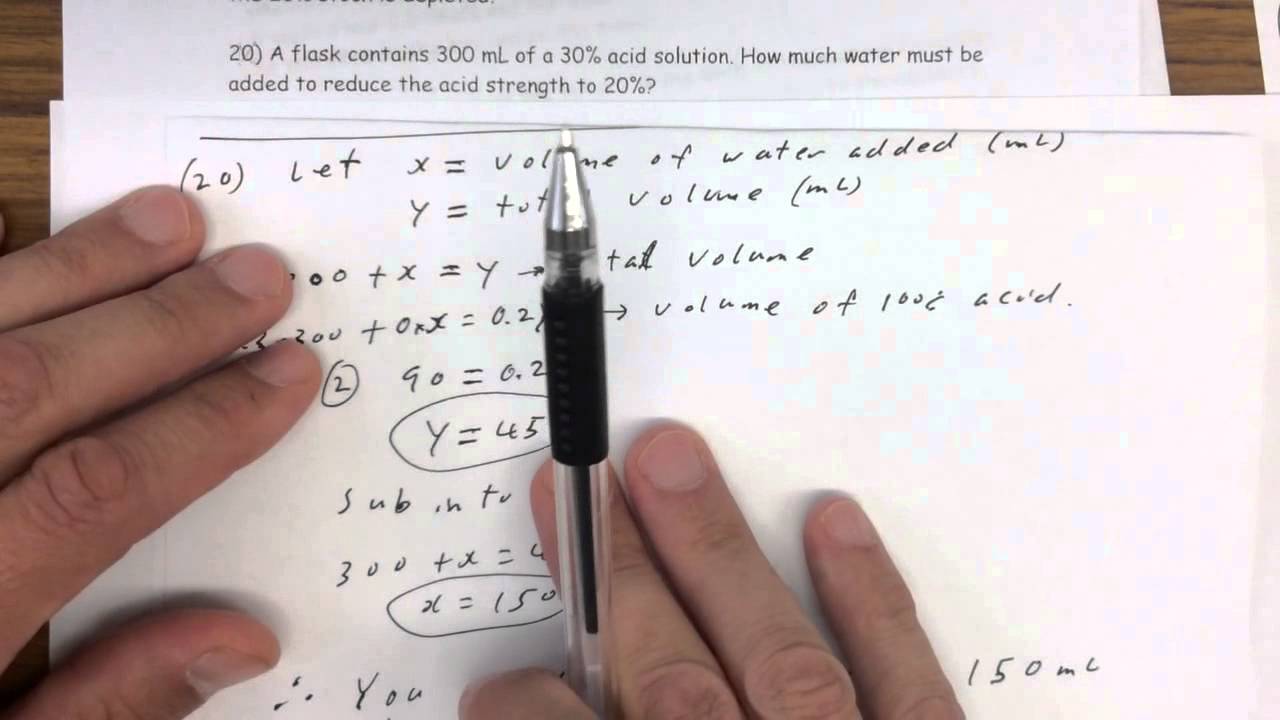 20) A flask contains 300 mL of a 30% acid solution. How much water must be
added to reduce the acid strength to 20%?
(20) Let x = volume of water added (mL)
y = total volume (mL)
00 + x = y → total volume
300 + 0xx = 0.2 → volume of 100% acid.
② 90 = 0.2
y = 45
Sub into
300 + x = 4
x = 150
∴ You 150 mL